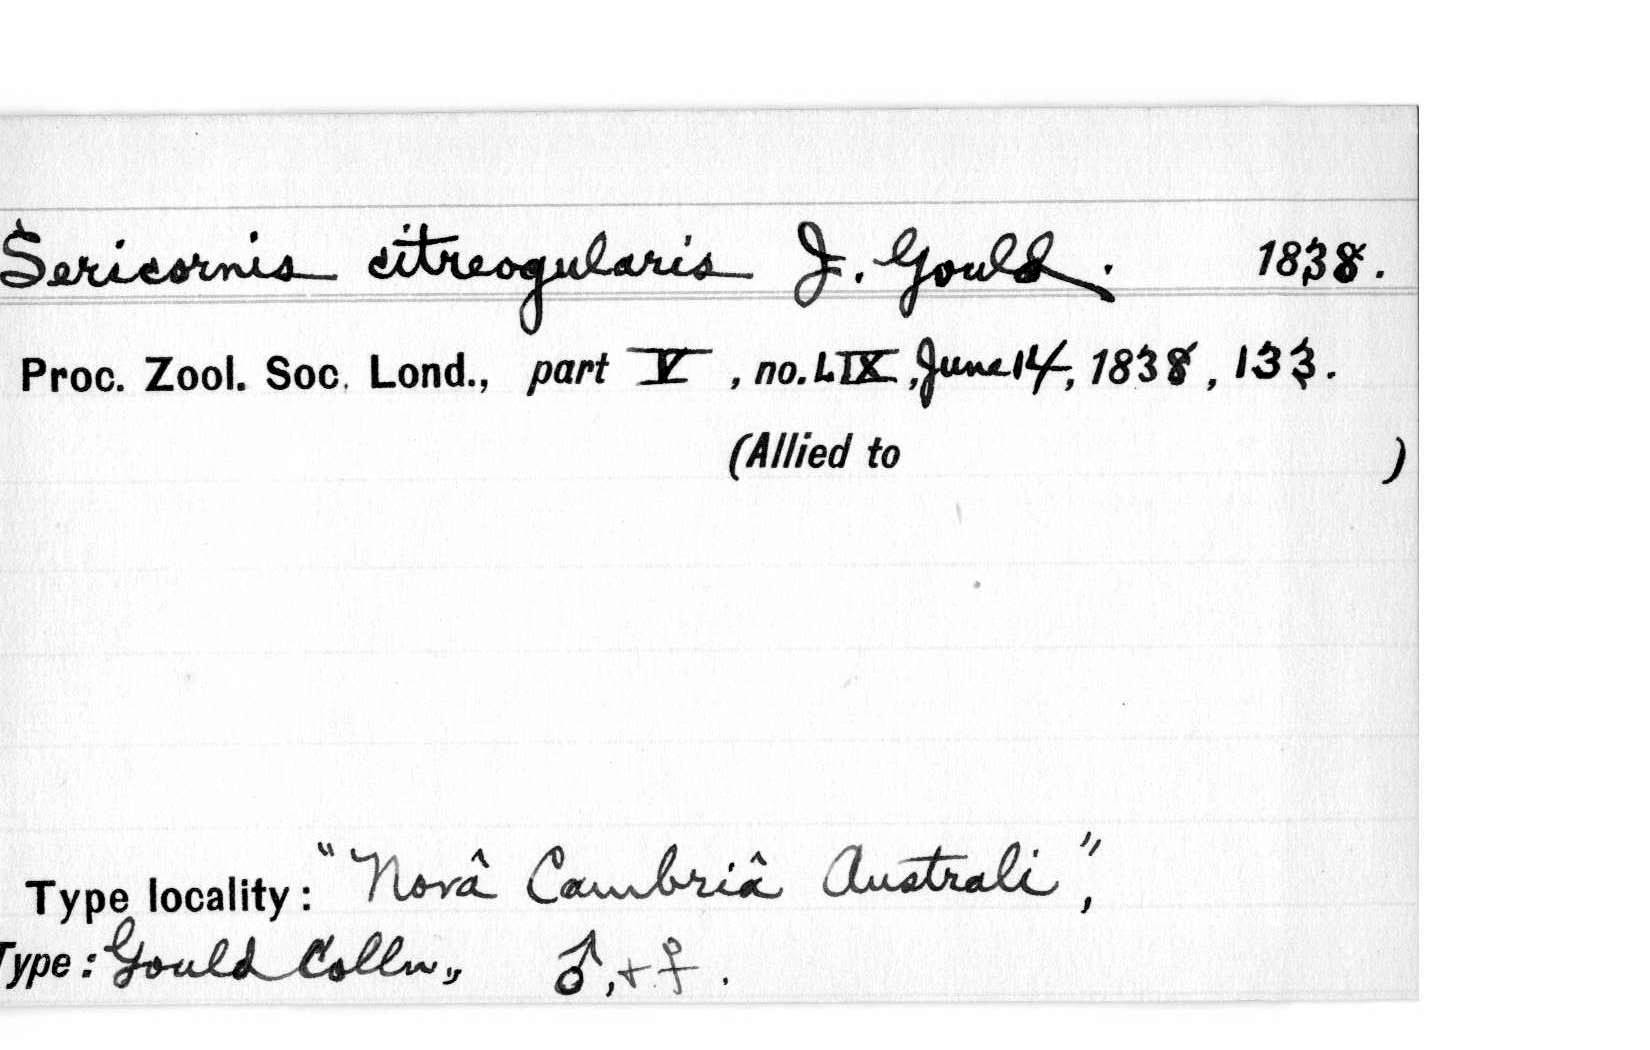 Sericornis citreogularis J. Gould. 1838.
Proc. Zool. Soc. Lond., part V, no. LIX, June 14, 1838, 133.
(Allied to )
Type locality: "Novâ Cambriâ Australi",
Type: Gould Colln., ♂, + ♀.